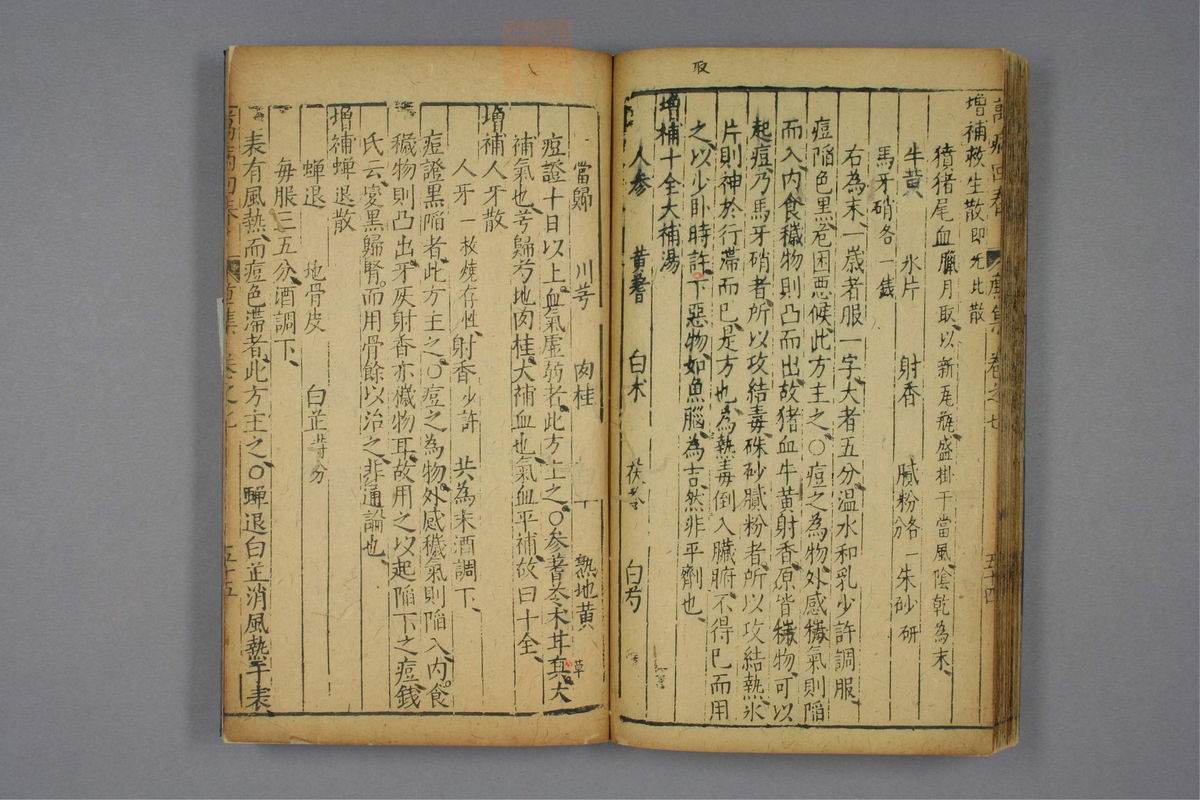 取
萬病回春
卷之七
五十四
增補救生散即先此散
猪尾血臘月取以新尾甁盛掛于當風陰乾為末
牛黃 氷片 射香 膩粉各一分 朱砂研
馬牙硝各一錢
右為末、一歲者服一字大者五分、温水和乳少許調服
痘陷色黑、危困悪候、此方主之、〇痘之為物、外感穢氣則陷
而入、内食穢物則凸而出、故猪血牛黃射香、原皆穢物、可以
起痘、乃馬牙硝者、所以攻結毒、硃砂膩粉者、所以攻結熱、氷
片則神於行滯而已、是方也、為熱毒倒入臟腑、不得已而用
之、以少卧時許、下惡物、如魚腦、為吉、然非平劑也、
增補十全大補湯
人參 黃蓍 白朮 茯苓 白芍
當歸 川芎 肉桂 熟地黃 草
痘證十日以上、血氣虛弱者、此方主之、〇參蓍苓朮甘草、大
補氣也、芎歸芍地肉桂、大補血也、氣血平補、故曰十全、
增補人牙散
人牙一枚燒存性 射香少許 共為末酒調下、
痘證黑陷者、此方主之、〇痘之為物、外感穢氣則陷入、内食
穢物則凸出、牙灰射香、亦穢物耳、故用之以起陷下之痘、錢
氏云、變黑歸腎、而用骨餘以治之、非通論也、
增補蟬退散
蟬退 地骨皮 白芷等分
每服三五分、酒調下、
表有風熱、而痘色滯者、此方主之、〇蟬退白芷、消風熱于表、
萬病回春
卷之七
五十五